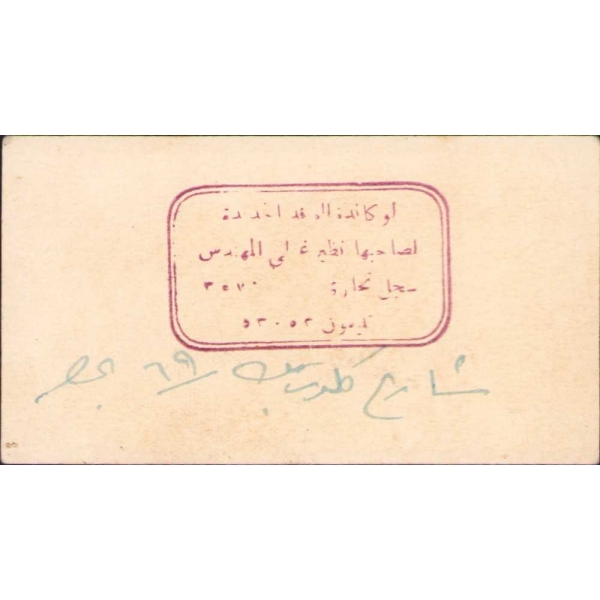 لوكاندة الوفد الجديدة
لصاحبها نظير غالي المهندس
سجل تجارة ٣٥٧٠
تليفون ٥٣٠٥٢
شارع كلوت بك ٦٩ بمصر